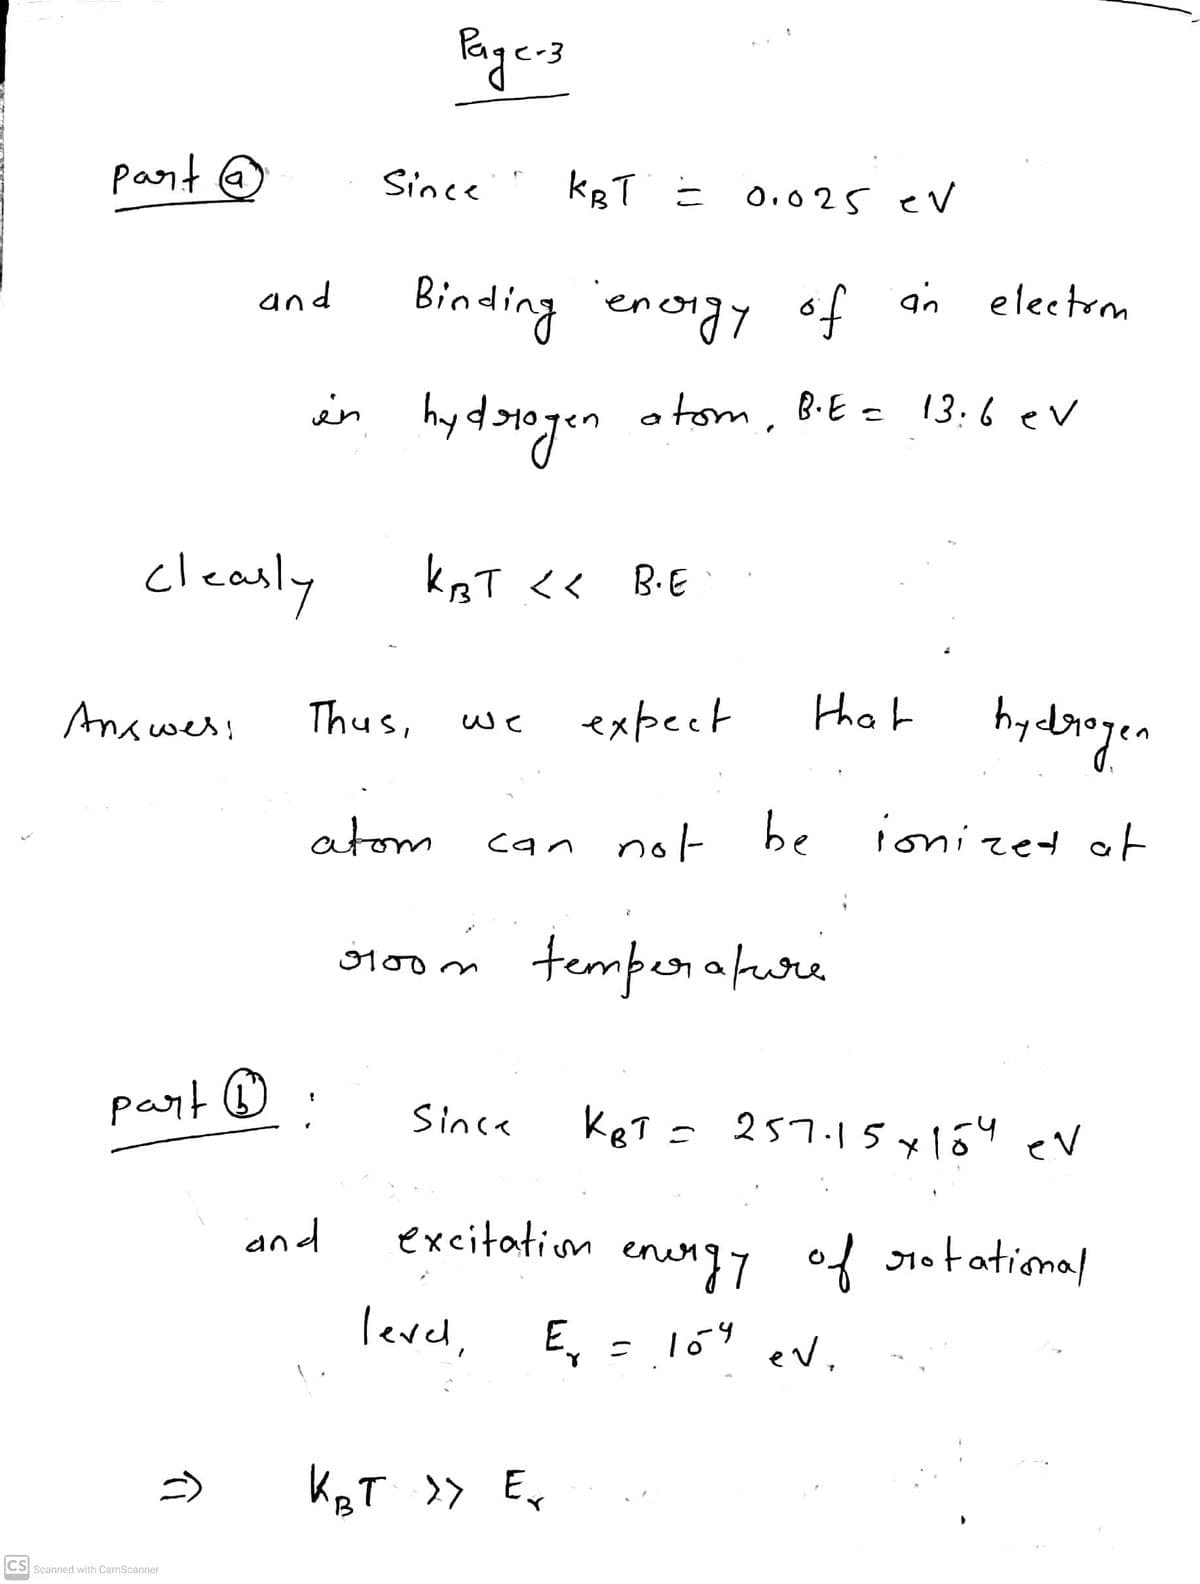 Page-3
part ⓐ Since kBT ≐ 0.025 eV
and Binding energy of an electron
in hydrogen atom, B.E = 13.6 eV
clearly kBT << B.E
Answer: Thus, we expect that hydrogen
atom can not be ionized at
room temperature
part ⓑ : Since KBT = 257.15 × 10⁻⁴ eV
and excitation energy of rotational
level, Er = 10⁻⁴ eV.
⇒ KBT >> Er
CS Scanned with CamScanner